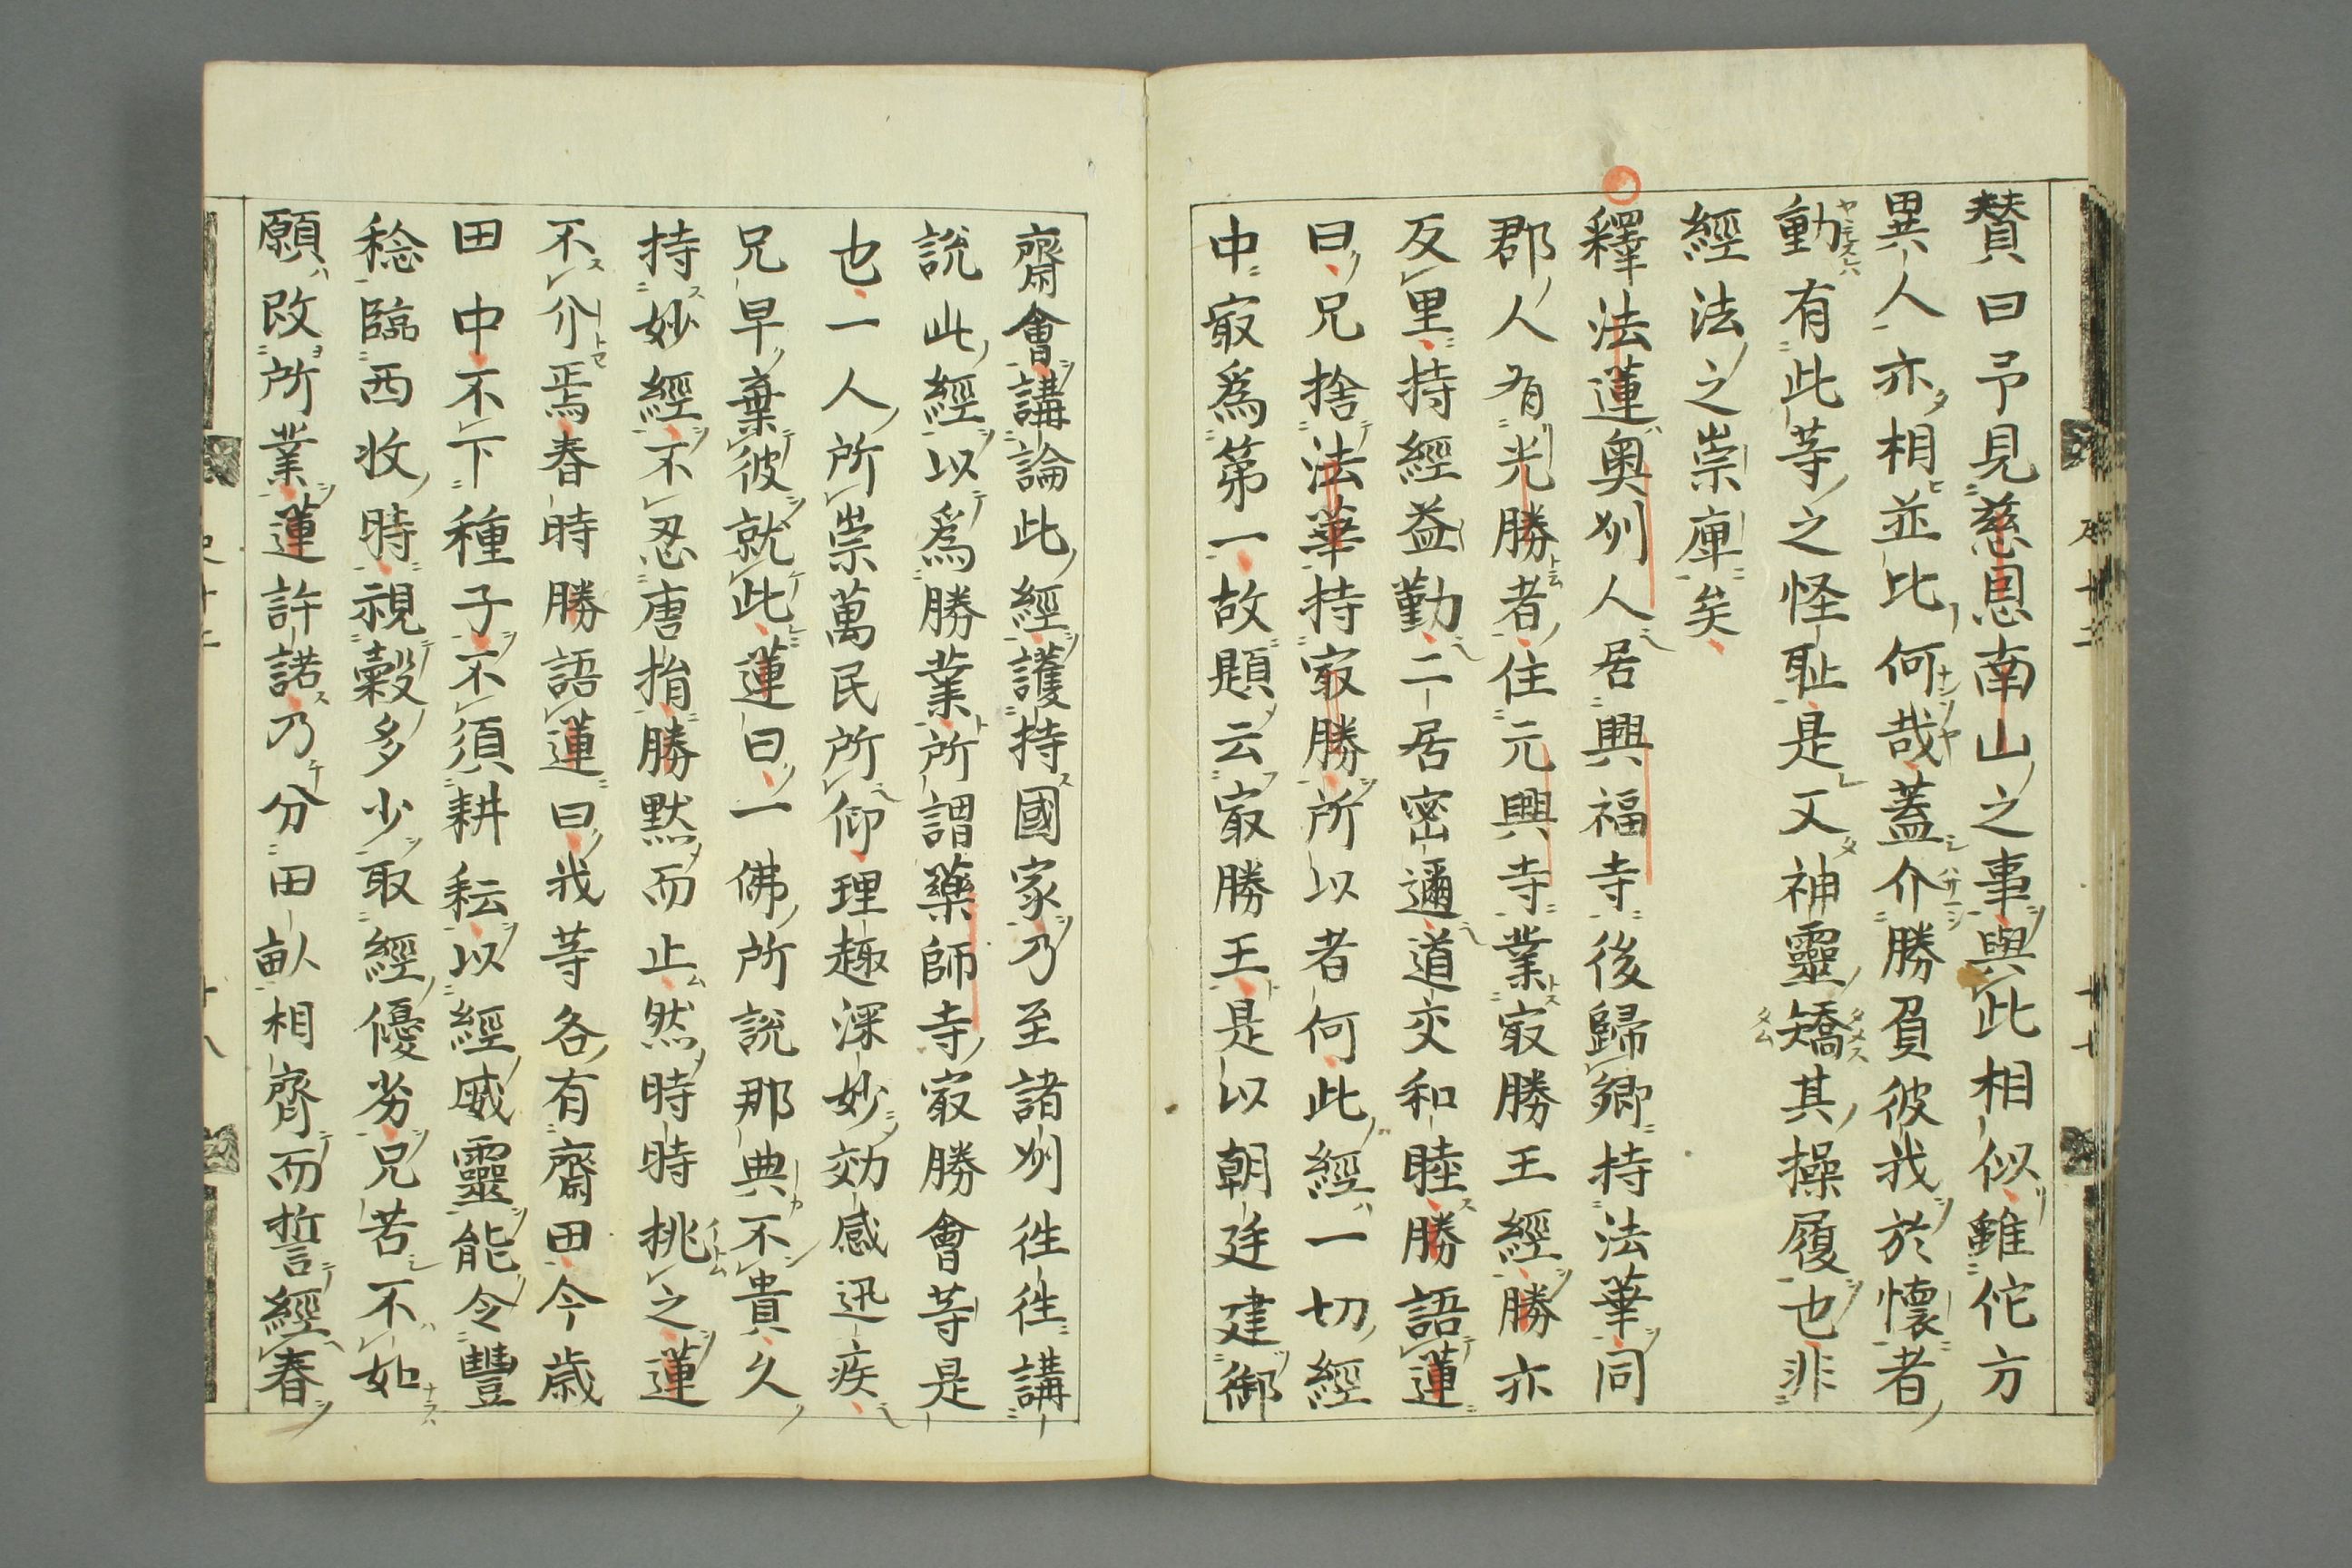 賛曰予見慈恩南山之事與此相似雖佗方
異人亦相並比何哉蓋介勝負彼我於懷者
動有此等之怪耻是又神靈矯其操履也非
經法之崇庳矣
釋法蓮奥州人居興福寺後歸鄉持法華同
郡人有光勝者住元興寺業㝡勝王經勝亦
反里持經益勤二居密邇道交和睦勝語蓮
曰兄捨法華持㝡勝所以者何此經一切經
中㝡爲第一故題云㝡勝王是以朝廷建御
齋會講論此經護持國家乃至諸州徃徃講
說此經以爲勝業所謂藥師寺㝡勝會等是
也一人所崇萬民所仰理趣深妙効感迅疾
兄早棄彼就此蓮曰一佛所說那典不貴久
持妙經不忍唐捐勝默而止然時時挑之蓮
不介焉春時勝語蓮曰我等各有齋田今歲
田中不下種子不須耕耘以經威靈能令豐
稔臨西收時視穀多少取經優劣兄苦不如
願改所業蓮許諾乃分田畝相齊而誓經春